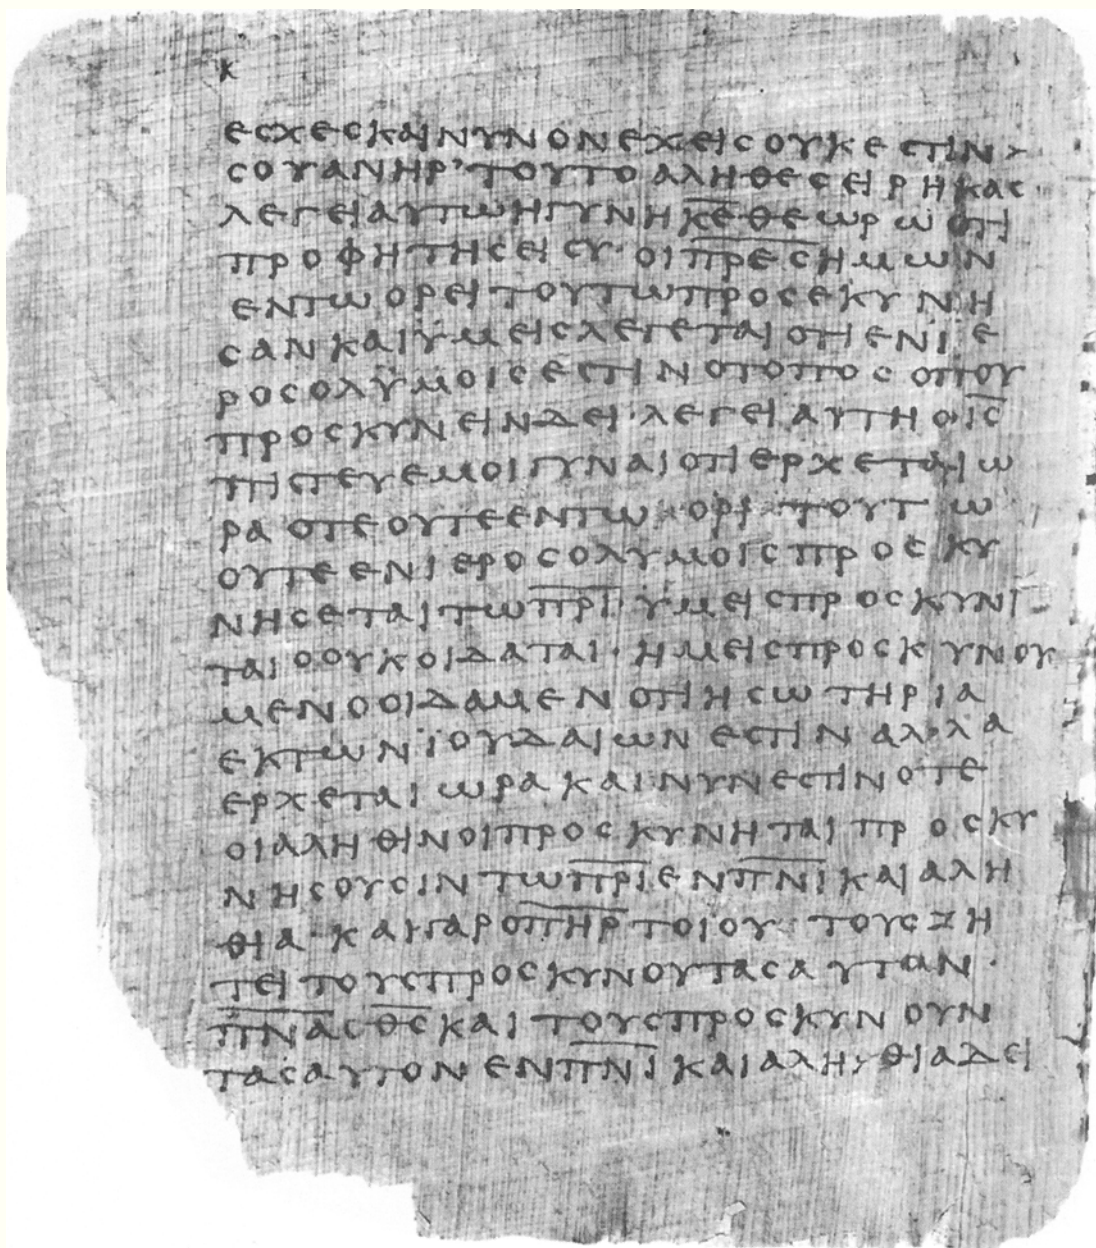 κ
εσχες και νυν ον εχεις ουκ εστιν >
σου ανηρ' τουτο αληθες ειρηκας ·
λεγει αυτω η γυνη κ̅ε̅ θεωρω οτι
προφητης ει συ · οι π̅ρ̅ε̅ς̅ ημων
εν τω ορει τουτω προσεκυνη
σαν και ϋμεις λεγεται οτι εν ϊε
ροσολυμοις εστιν ο τοπος οπου
προσκυνειν δει · λεγει αυτη ο ι̅ς̅
πιστευε μοι γυναι οτι ερχεται ω
ρα οτε ουτε εν τω ορι τουτω
ουτε εν ιεροσολυμοις προσκυ
νησεται τω π̅ρ̅ι̅ · ϋμεις προσκυνι
ται ο ουκ οιδαται · ημεις προσκυνου
μεν ο οιδαμεν οτι η σωτηρια
εκ των ϊουδαιων εστιν αλλα
ερχεται ωρα και νυν εστιν οτε
οι αληθινοι προσκυνηται προσκυ
νησουσιν τω π̅ρ̅ι̅ εν π̅ν̅ι̅ και αλη
θια · και γαρ ο π̅η̅ρ̅ τοιου · τους ζη
τει τους προσκυνουτας αυτον ·
π̅ν̅α̅ ο θ̅ς̅ και τους προσκυνουν
τας αυτον εν π̅ν̅ι̅ και αληθια δει